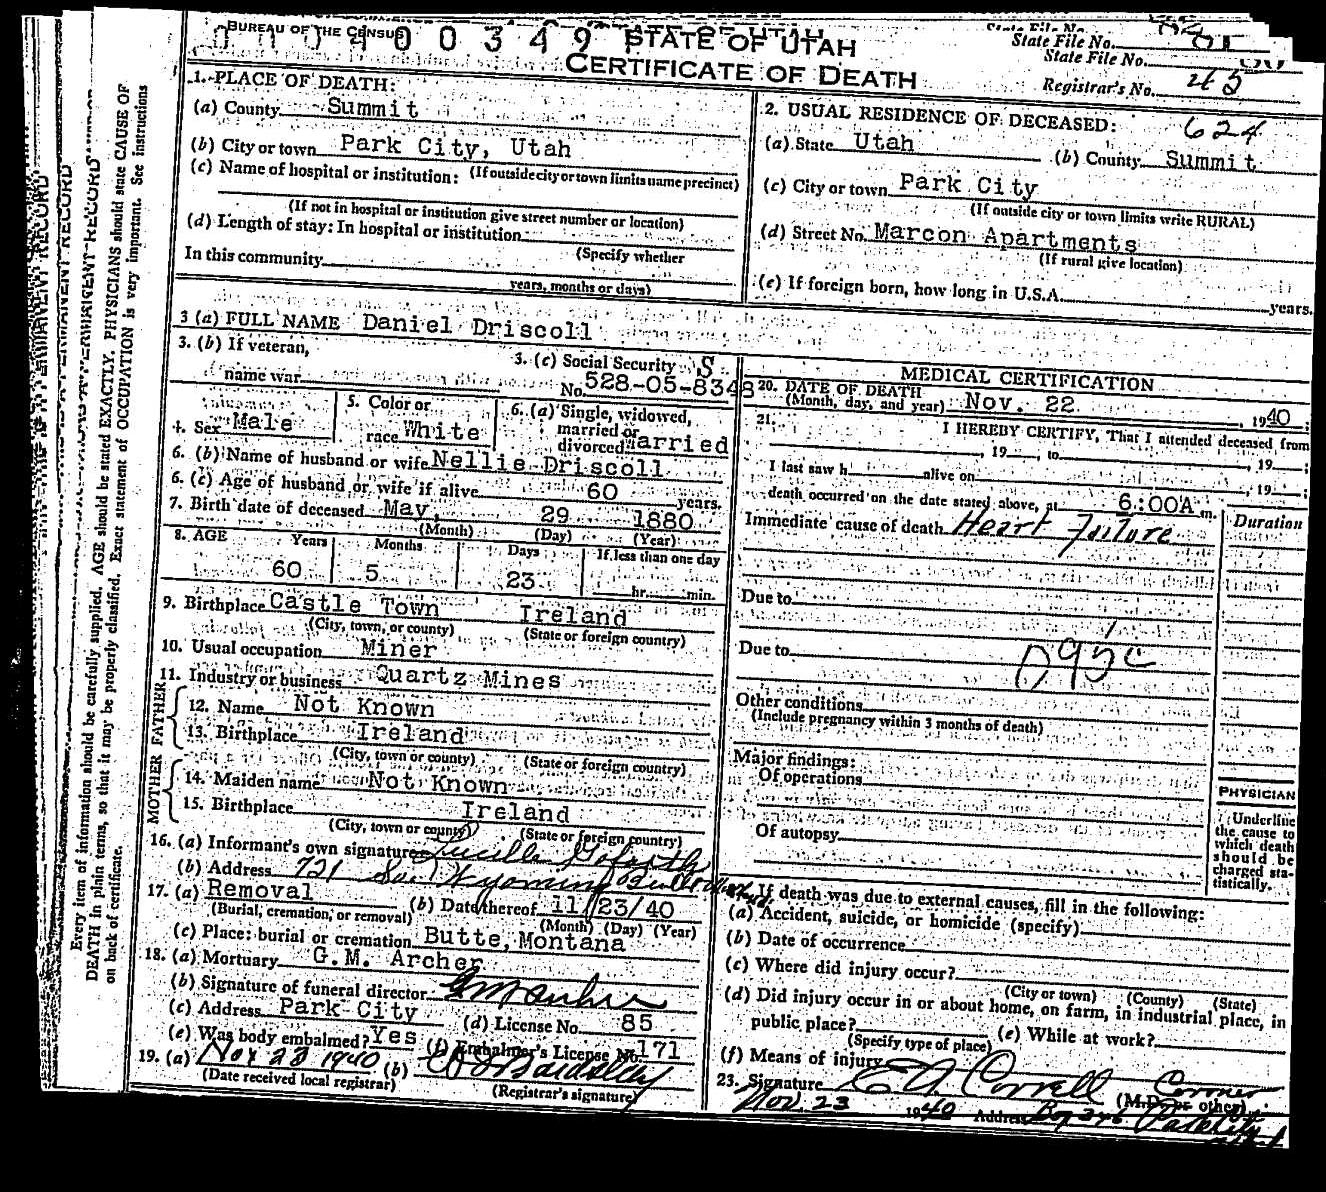 BUREAU OF THE CENSUS
00349
STATE OF UTAH
CERTIFICATE OF DEATH
State File No.
State File No.
Registrar's No. 43
1. PLACE OF DEATH:
(a) County Summit
(b) City or town Park City, Utah
(c) Name of hospital or institution: (If outside city or town limits name precinct)
(If not in hospital or institution give street number or location)
(d) Length of stay: In hospital or institution
(Specify whether
In this community
years, months or days)
2. USUAL RESIDENCE OF DECEASED:
624
(a) State Utah (b) County Summit
(c) City or town Park City
(If outside city or town limits write RURAL)
(d) Street No. Marcon Apartments
(If rural give location)
(e) If foreign born, how long in U.S.A. years.
3 (a) FULL NAME Daniel Driscoll
3. (b) If veteran,
name war
3. (c) Social Security S
No. 528-05-8348
4. Sex Male
5. Color or
race White
6. (a) Single, widowed,
married or
divorced Married
6. (b) Name of husband or wife Nellie Driscoll
6. (c) Age of husband or wife if alive 60 years.
7. Birth date of deceased May, 29 1880
(Month) (Day) (Year)
8. AGE Years Months Days If less than one day
60 5 23 hr. min.
9. Birthplace Castle Town Ireland
(City, town, or county) (State or foreign country)
10. Usual occupation Miner
11. Industry or business Quartz Mines
FATHER
12. Name Not Known
13. Birthplace Ireland
(City, town or county) (State or foreign country)
MOTHER
14. Maiden name Not Known
15. Birthplace Ireland
(City, town or county) (State or foreign country)
16. (a) Informant's own signature Lucille
(b) Address 721 So. Wyoming Butte
17. (a) Removal (b) Date thereof 11/23/40
(Burial, cremation, or removal) (Month) (Day) (Year)
(c) Place: burial or cremation Butte, Montana
18. (a) Mortuary G.M. Archer
(b) Signature of funeral director GM Archer
(c) Address Park City (d) License No. 85
(e) Was body embalmed? Yes (f) Embalmer's License No. 171
19. (a) Nov 23 1940 (b)
(Date received local registrar) (Registrar's signature)
MEDICAL CERTIFICATION
20. DATE OF DEATH
(Month, day, and year) Nov. 22, 1940;
21. I HEREBY CERTIFY, That I attended deceased from
, 19 , to , 19 ;
I last saw h alive on , 19 ;
death occurred on the date stated above, at 6:00A m.
Duration
Immediate cause of death Heart Failure
Due to
Due to
95c
Other conditions
(Include pregnancy within 3 months of death)
Major findings:
Of operations
Of autopsy
PHYSICIAN
Underline
the cause to
which death
should be
charged sta-
tistically.
22. If death was due to external causes, fill in the following:
(a) Accident, suicide, or homicide (specify)
(b) Date of occurrence
(c) Where did injury occur?
(City or town) (County) (State)
(d) Did injury occur in or about home, on farm, in industrial place, in
public place? (e) While at work?
(Specify type of place)
(f) Means of injury
23. Signature Correll Coroner
(M.D. or other)
Nov. 23 1940 Address Box 346 Park City
Every item of information should be carefully supplied. AGE should be stated EXACTLY. PHYSICIANS should state CAUSE OF
DEATH in plain terms, so that it may be properly classified. Exact statement of OCCUPATION is very important. See instructions
on back of certificate.